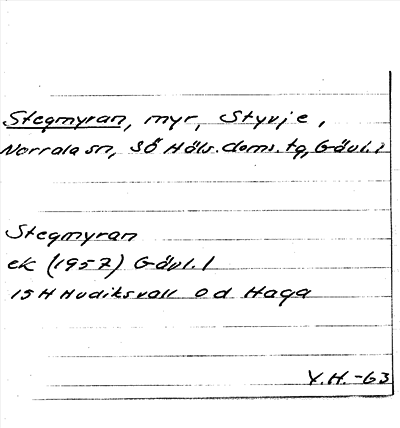 Stegmyran, myr, Styvje,
Norrala sn, SÖ Häls. doms. tg, Gävl. l
Stegmyran
ek (1957) Gävl. l
15H Hudiksvall od Haga
Y.H. -63